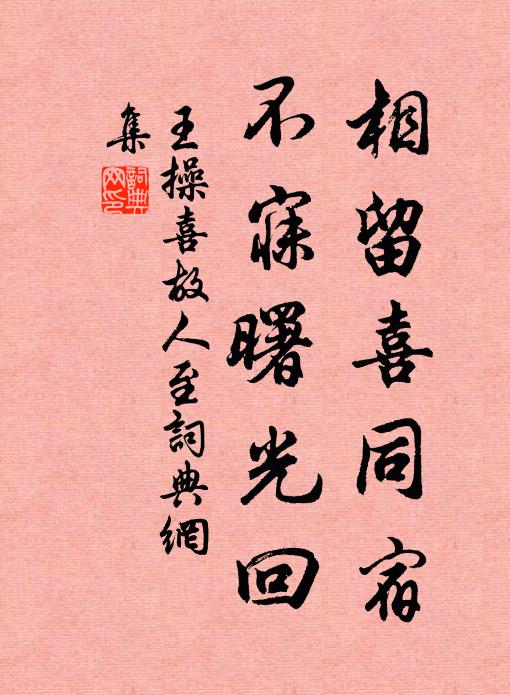 相留喜同宿
不寐曙光回
王操喜故人至詞典網
集
詞典网印